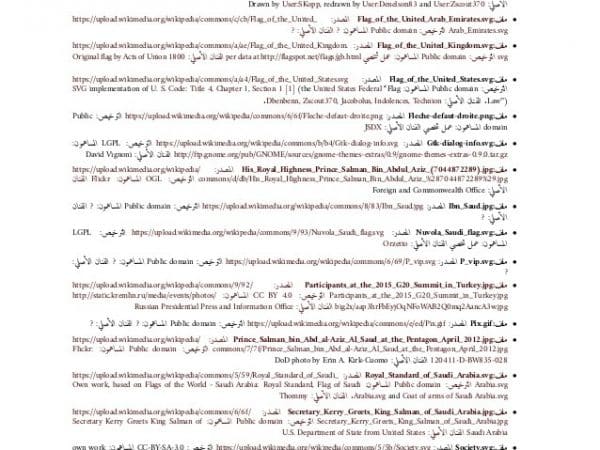 الأصلي: Drawn by User:SKopp, redrawn by User:Denelson83 and User:Zscout370
• ملف:Flag_of_the_United_Arab_Emirates.svg المصدر: https://upload.wikimedia.org/wikipedia/commons/c/cb/Flag_of_the_United_
Arab_Emirates.svg الترخيص: Public domain المساهمون: ? الفنان الأصلي: ?
• ملف:Flag_of_the_United_Kingdom.svg المصدر: https://upload.wikimedia.org/wikipedia/commons/a/ae/Flag_of_the_United_Kingdom.
svg الترخيص: Public domain المساهمون: عمل شخصي per data at http://flagspot.net/flags/gb.html الفنان الأصلي: Original flag by Acts of Union 1800
• ملف:Flag_of_the_United_States.svg المصدر: https://upload.wikimedia.org/wikipedia/commons/a/a4/Flag_of_the_United_States.svg
الترخيص: Public domain المساهمون: SVG implementation of U. S. Code: Title 4, Chapter 1, Section 1 [1] (the United States Federal "Flag
Law"). الفنان الأصلي: Dbenbenn, Zscout370, Jacobolus, Indolences, Technion.
• ملف:Fleche-defaut-droite.png المصدر: https://upload.wikimedia.org/wikipedia/commons/6/6f/Fleche-defaut-droite.png الترخيص: Public
domain المساهمون: عمل شخصي الفنان الأصلي: JSDX
• ملف:Gtk-dialog-info.svg المصدر: https://upload.wikimedia.org/wikipedia/commons/b/b4/Gtk-dialog-info.svg الترخيص: LGPL المساهمون:
http://ftp.gnome.org/pub/GNOME/sources/gnome-themes-extras/0.9/gnome-themes-extras-0.9.0.tar.gz الفنان الأصلي: David Vignoni
• ملف:His_Royal_Highness_Prince_Salman_Bin_Abdul_Aziz_(7044872289).jpg المصدر: https://upload.wikimedia.org/wikipedia/
commons/d/db/His_Royal_Highness_Prince_Salman_Bin_Abdul_Aziz_%287044872289%29.jpg الترخيص: OGL المساهمون: Flickr الفنان
الأصلي: Foreign and Commonwealth Office
• ملف:Ibn_Saud.jpg المصدر: https://upload.wikimedia.org/wikipedia/commons/8/83/Ibn_Saud.jpg الترخيص: Public domain المساهمون: ? الفنان
الأصلي: ?
• ملف:Nuvola_Saudi_flag.svg المصدر: https://upload.wikimedia.org/wikipedia/commons/9/93/Nuvola_Saudi_flag.svg الترخيص: LGPL
المساهمون: عمل شخصي الفنان الأصلي: Orzetto
• ملف:P_vip.svg المصدر: https://upload.wikimedia.org/wikipedia/commons/6/69/P_vip.svg الترخيص: Public domain المساهمون: ? الفنان الأصلي:
?
• ملف:Participants_at_the_2015_G20_Summit_in_Turkey.jpg المصدر: https://upload.wikimedia.org/wikipedia/commons/9/92/
Participants_at_the_2015_G20_Summit_in_Turkey.jpg الترخيص: CC BY 4.0 المساهمون: http://static.kremlin.ru/media/events/photos/
الفنان الأصلي: Russian Presidential Press and Information Office
• ملف:Pix.gif المصدر: https://upload.wikimedia.org/wikipedia/commons/e/ed/Pix.gif الترخيص: Public domain المساهمون: ? الفنان الأصلي: ?
• ملف:Prince_Salman_bin_Abd_al-Aziz_Al_Saud_at_the_Pentagon_April_2012.jpg المصدر: https://upload.wikimedia.org/wikipedia/
commons/7/7f/Prince_Salman_bin_Abd_al-Aziz_Al_Saud_at_the_Pentagon_April_2012.jpg الترخيص: Public domain المساهمون: Flickr:
120411-D-BW835-028 الفنان الأصلي: DoD photo by Erin A. Kirk-Cuomo
• ملف:Royal_Standard_of_Saudi_Arabia.svg المصدر: https://upload.wikimedia.org/wikipedia/commons/5/59/Royal_Standard_of_Saudi_
Arabia.svg الترخيص: Public domain المساهمون: Own work, based on Flags of the World - Saudi Arabia: Royal Standard, Flag of Saudi
Arabia.svg and Coat of arms of Saudi Arabia.svg الفنان الأصلي: Thommy
• ملف:Secretary_Kerry_Greets_King_Salman_of_Saudi_Arabia.jpg المصدر: https://upload.wikimedia.org/wikipedia/commons/6/6f/
Secretary_Kerry_Greets_King_Salman_of_Saudi_Arabia.jpg الترخيص: Public domain المساهمون: Secretary Kerry Greets King Salman of
Saudi Arabia الفنان الأصلي: U.S. Department of State from United States
• ملف:Society.svg المصدر: https://upload.wikimedia.org/wikipedia/commons/5/5b/Society.svg الترخيص: CC-BY-SA-3.0 المساهمون: own work